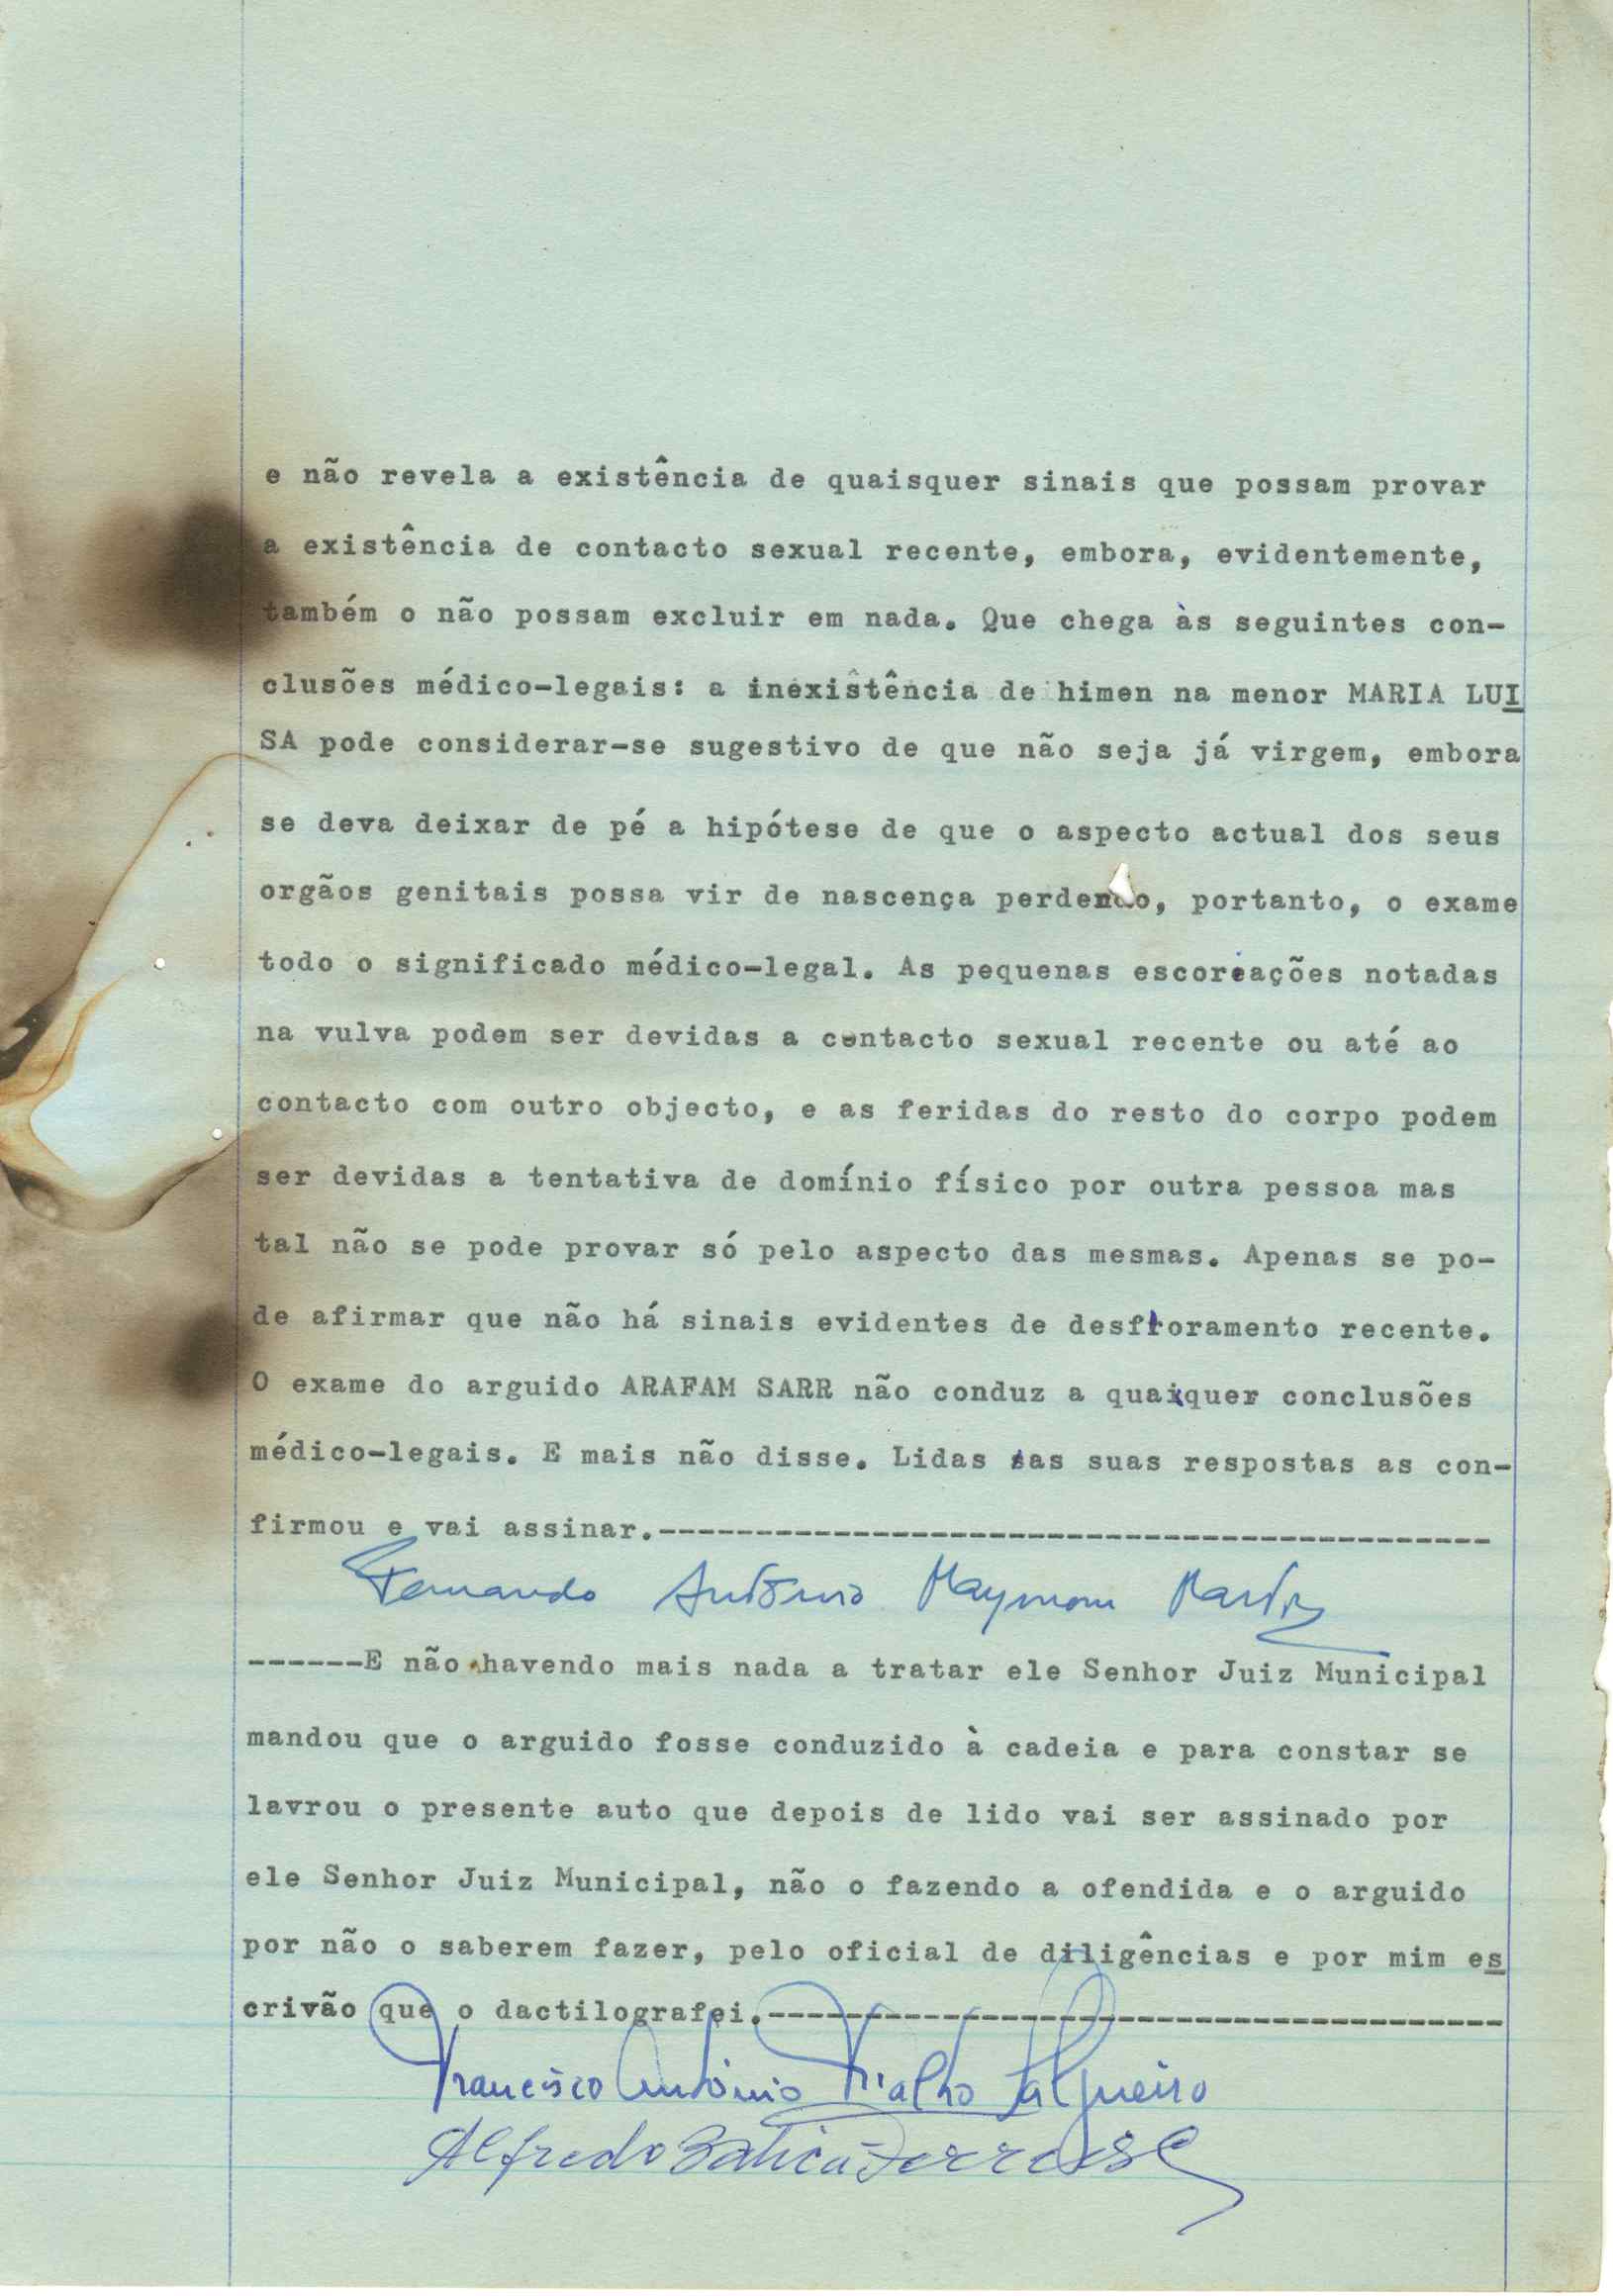 e não revela a existência de quaisquer sinais que possam provar
a existência de contacto sexual recente, embora, evidentemente,
também o não possam excluir em nada. Que chega às seguintes con-
clusões médico-legais: a inexistência de himen na menor MARIA LUI
SA pode considerar-se sugestivo de que não seja já virgem, embora
se deva deixar de pé a hipótese de que o aspecto actual dos seus
orgãos genitais possa vir de nascença perdendo, portanto, o exame
todo o significado médico-legal. As pequenas escoriações notadas
na vulva podem ser devidas a contacto sexual recente ou até ao
contacto com outro objecto, e as feridas do resto do corpo podem
ser devidas a tentativa de domínio físico por outra pessoa mas
tal não se pode provar só pelo aspecto das mesmas. Apenas se po-
de afirmar que não há sinais evidentes de desfloramento recente.
O exame do arguido ARAFAM SARR não conduz a quaiquer conclusões
médico-legais. E mais não disse. Lidas as suas respostas as con-
firmou e vai assinar.-------------------------------------------
Fernando António Maymone Martins
------E não havendo mais nada a tratar ele Senhor Juiz Municipal
mandou que o arguido fosse conduzido à cadeia e para constar se
lavrou o presente auto que depois de lido vai ser assinado por
ele Senhor Juiz Municipal, não o fazendo a ofendida e o arguido
por não o saberem fazer, pelo oficial de diligências e por mim es
crivão que o dactilografei.--------------------------------------
Francisco António Fialho Salgueiro
Alfredo